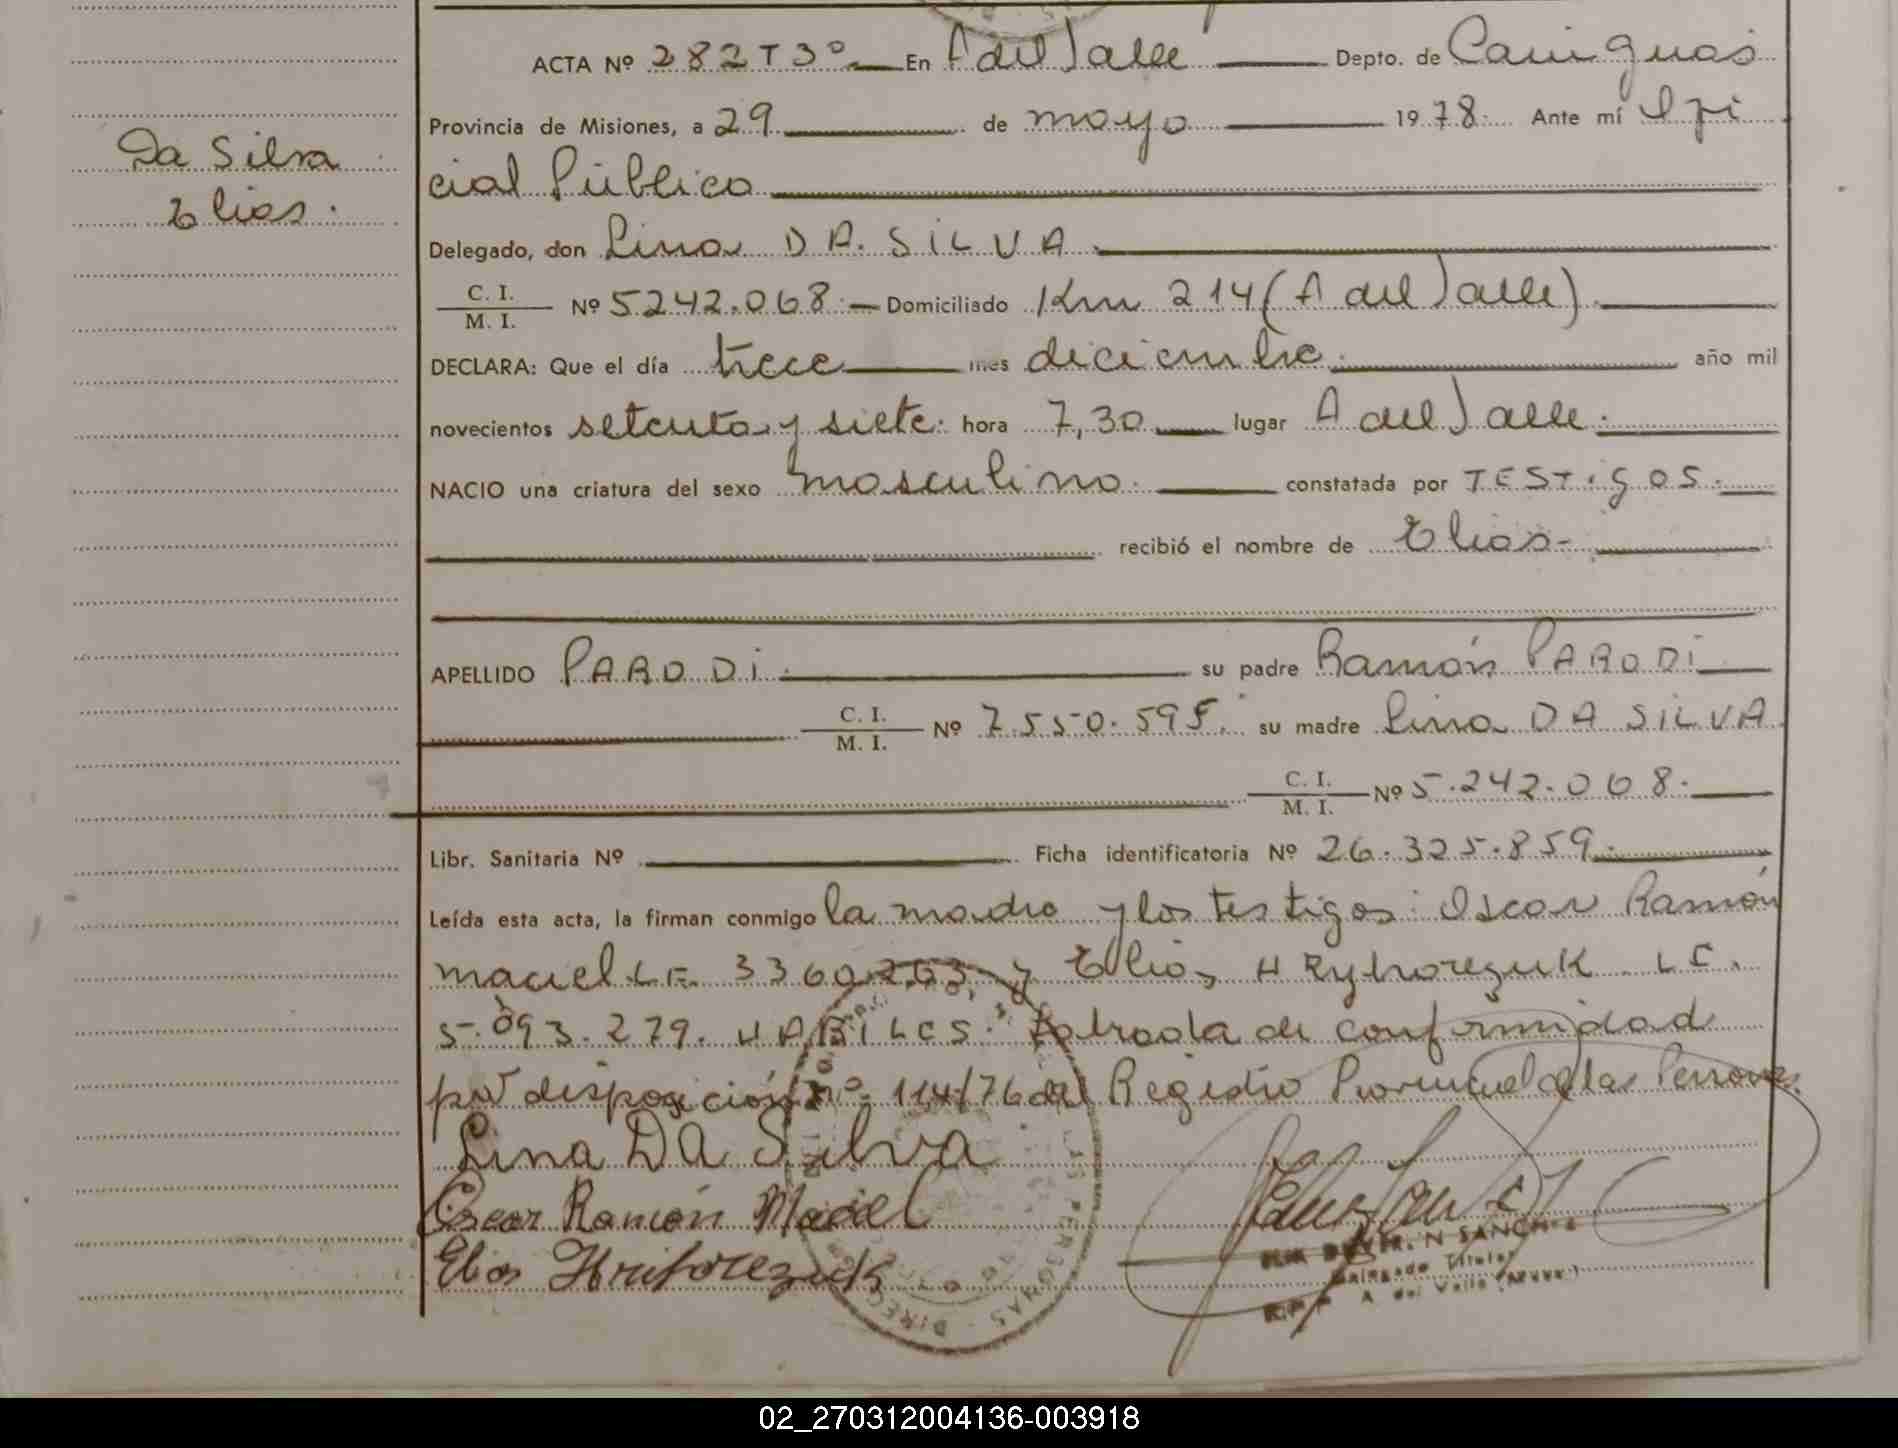 ACTA Nº 282 T 3º En A del Valle Depto. de Cainguas
Provincia de Misiones, a 29 de mayo 1978. Ante mí Ofi
cial Público
Da Silva
Elias.
Delegado, don Lina DA SILVA
C. I.
M. I. Nº 5242.068. Domiciliado Km 214 (A del Valle)
DECLARA: Que el día trece mes diciembre. año mil
novecientos setenta y siete. hora 7,30 lugar A del Valle.
NACIO una criatura del sexo masculino. constatada por TESTigOS.
recibió el nombre de Elias-
APELLIDO PARODi. su padre Ramón PARODi
C. I.
M. I. Nº 7.550.595. su madre Lina DA SILVA
C. I.
M. I. Nº 5.242.068.
Libr. Sanitaria Nº Ficha identificatoria Nº 26.325.859.
Leída esta acta, la firman conmigo la madre y los testigos: Oscar Ramón
maciel L.E. 3360263, y Elias, HRyhorezuk L C.
5.093.279. HABILES. Labrada de conformidad
por disposición nº 114/76 del Registro Provincial de las Personas.
Lina DA Silva
Oscar Ramón Maciel
Elias Hrihorezuk
SANCHEZ
Delegado Titular
A del Valle
LAS PERSONAS - DIREC
02_270312004136-003918